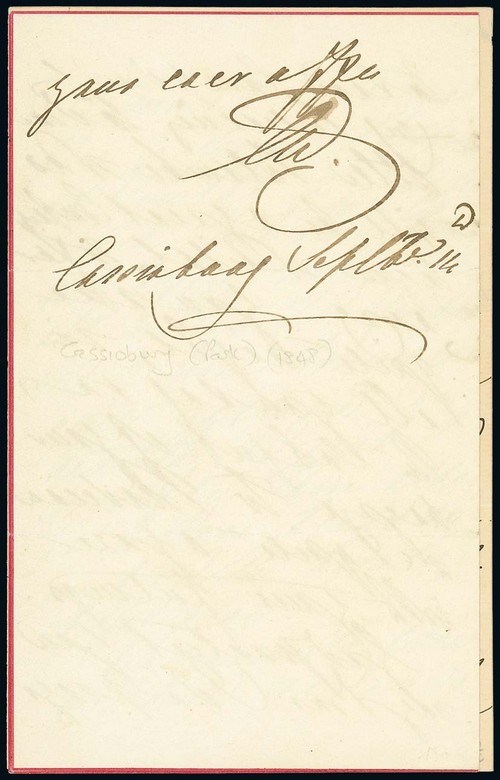 yours ever affec
Cassiobury Septbr. 16
Cassiobury (Park) (1848)